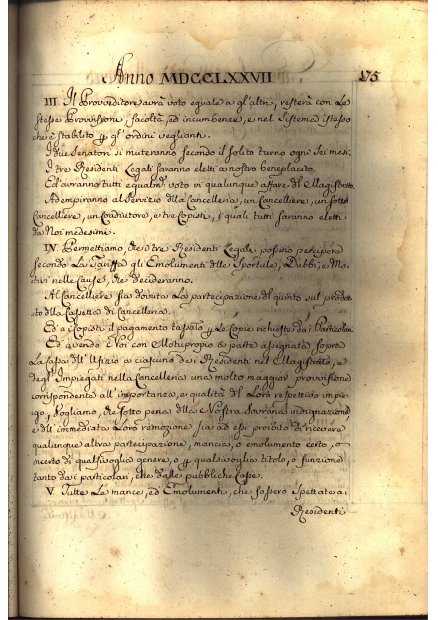 Anno MDCCLXXVII 175
III. Il Provveditore avrà voto eguale a gl'altri, resterà con Le
stesse Provvisioni, facoltà, ed incumbenze, e nel Sistema istesso
che è stabilito p gl'ordini veglianti.
I due Senatori si muteranno secondo il solito turno ogni sei mesi.
I tre Residenti Legali saranno eletti a nostro beneplacito.
Ed avranno tutti egualm: voto in qualunque affare del Magistrato.
Adempiranno al Servizio dlla Cancelleria, un Cancelliere, un sotto
Cancelliere, un Coadiutore, e tre Copisti, i quali tutti saranno eletti
da Noi medesimi.
IV. Permettiamo, che i tre Residenti Legali possino percipere
secondo La Tariffa gli Emolumenti dlle Sportule, Dubbi, e Mo-
tivi nelle Cause, che decideranno.
Al Cancelliere sia dovuta La partecipazione del quinto sul prodot-
to dlla Cassetta di Cancelleria.
Ed a Copisti il pagamento tassato p Le Copie richieste da i Particolari.
Ed avendo Noi con Motuproprio a parte assegnata sopra
La Cassa dll'Ufizio a ciascuno de i Residenti nel Magistrato, e
degl'Impiegati nella Cancelleria una molto maggior provvisione
corrispondente all'importanza, e qualità del Loro respettivo impie-
go, Vogliamo, che sotto pena dlla Nostra Sovrana indignazione
e dll'immediata Loro remozione sia ad essi proibito di ricevere
qualunque altra partecipazione, mancia, o emolumento certo, o
incerto di qualsivoglia genere, o p qualsivoglia titolo, o funzione
tanto da i particolari, che dalle pubbliche Casse.
V. Tutte Le mance, ed Emolumenti, che fossero Spettate a i
Residenti